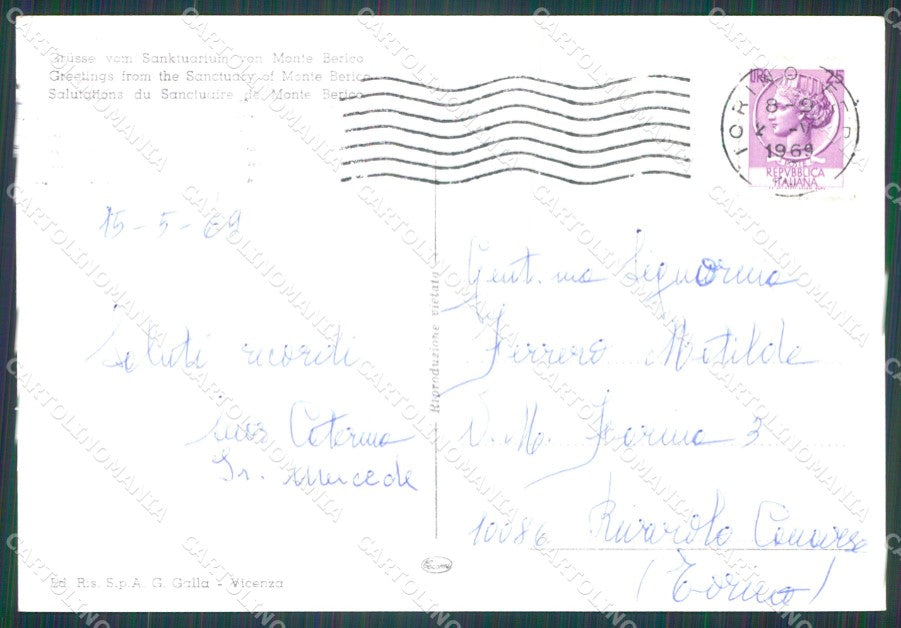 Grüsse vom Sanktuarium von Monte Berico
Greetings from the Sanctuary of Monte Berico
Salutations du Sanctuaire de Monte Berico
LIRE 25
TORINO FER
8-9
-V
1969
POSTE
REPVBBLICA
ITALIANA
15-5-69
Saluti ricordi
suor Caterina
Sr. Mercede
Riproduzione vietata
Gent.ma Signorina
Ferrero Matilde
V. M. Farina 3
10086 Rivarolo Canavese
(Torino)
Ed. Ris. S.p.A. G. Galla - Vicenza
CARTOLINOMANIA